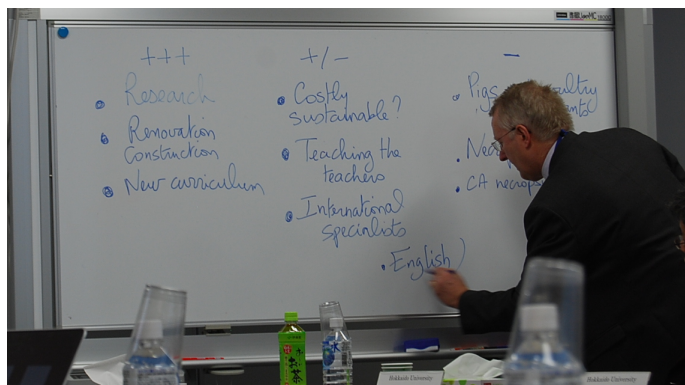 +++
Research
Renovation
Construction
New curriculum
+/-
Costly
sustainable?
Teaching the
teachers
International
specialists
English)
-
Pigs
CA
Hokkaido University
Hokkaido University